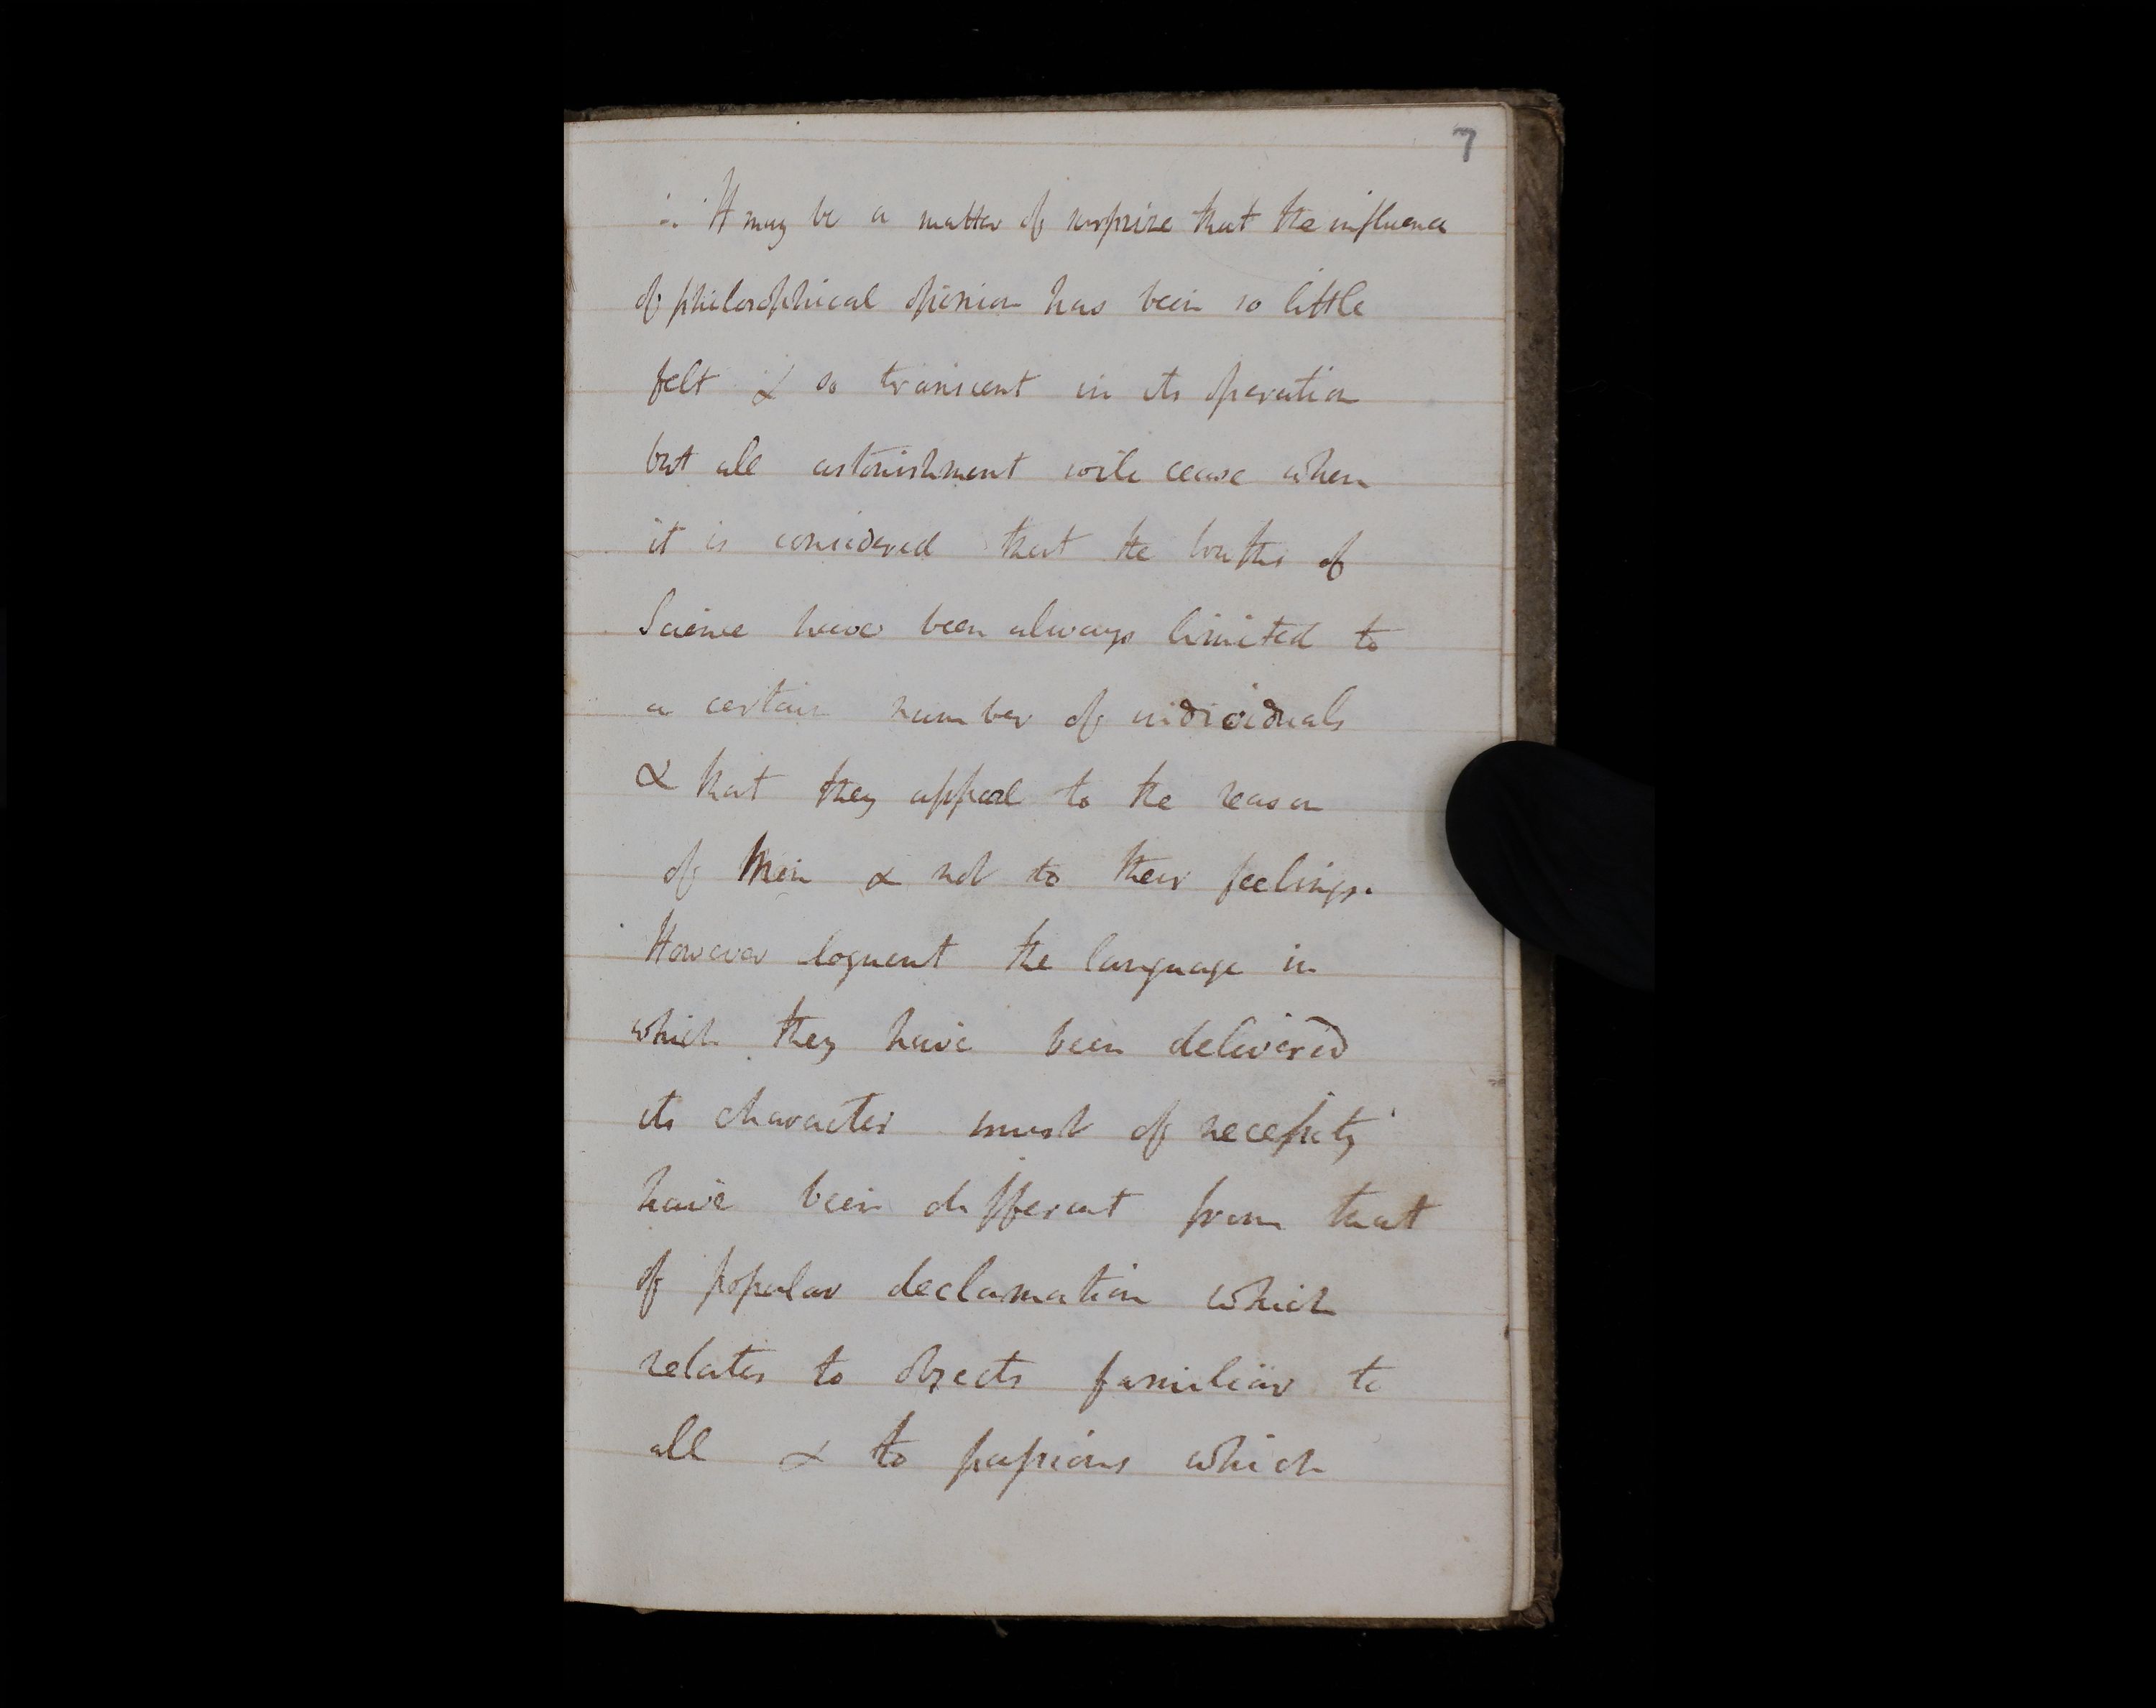 7
∴ It may be a matter of surprize that the influence
of philosophical opinion has been so little
felt & so transient in its operation
but all astonishment will cease when
it is considered that the truths of
Science have been always limited to
a certain number of individuals
& that they appeal to the reason
of Men & not to their feelings.
However loquent the language in
which they have been delivered
its character must of necessity
have been different from that
of popular declamation which
relates to objects familiar to
all & to passions which